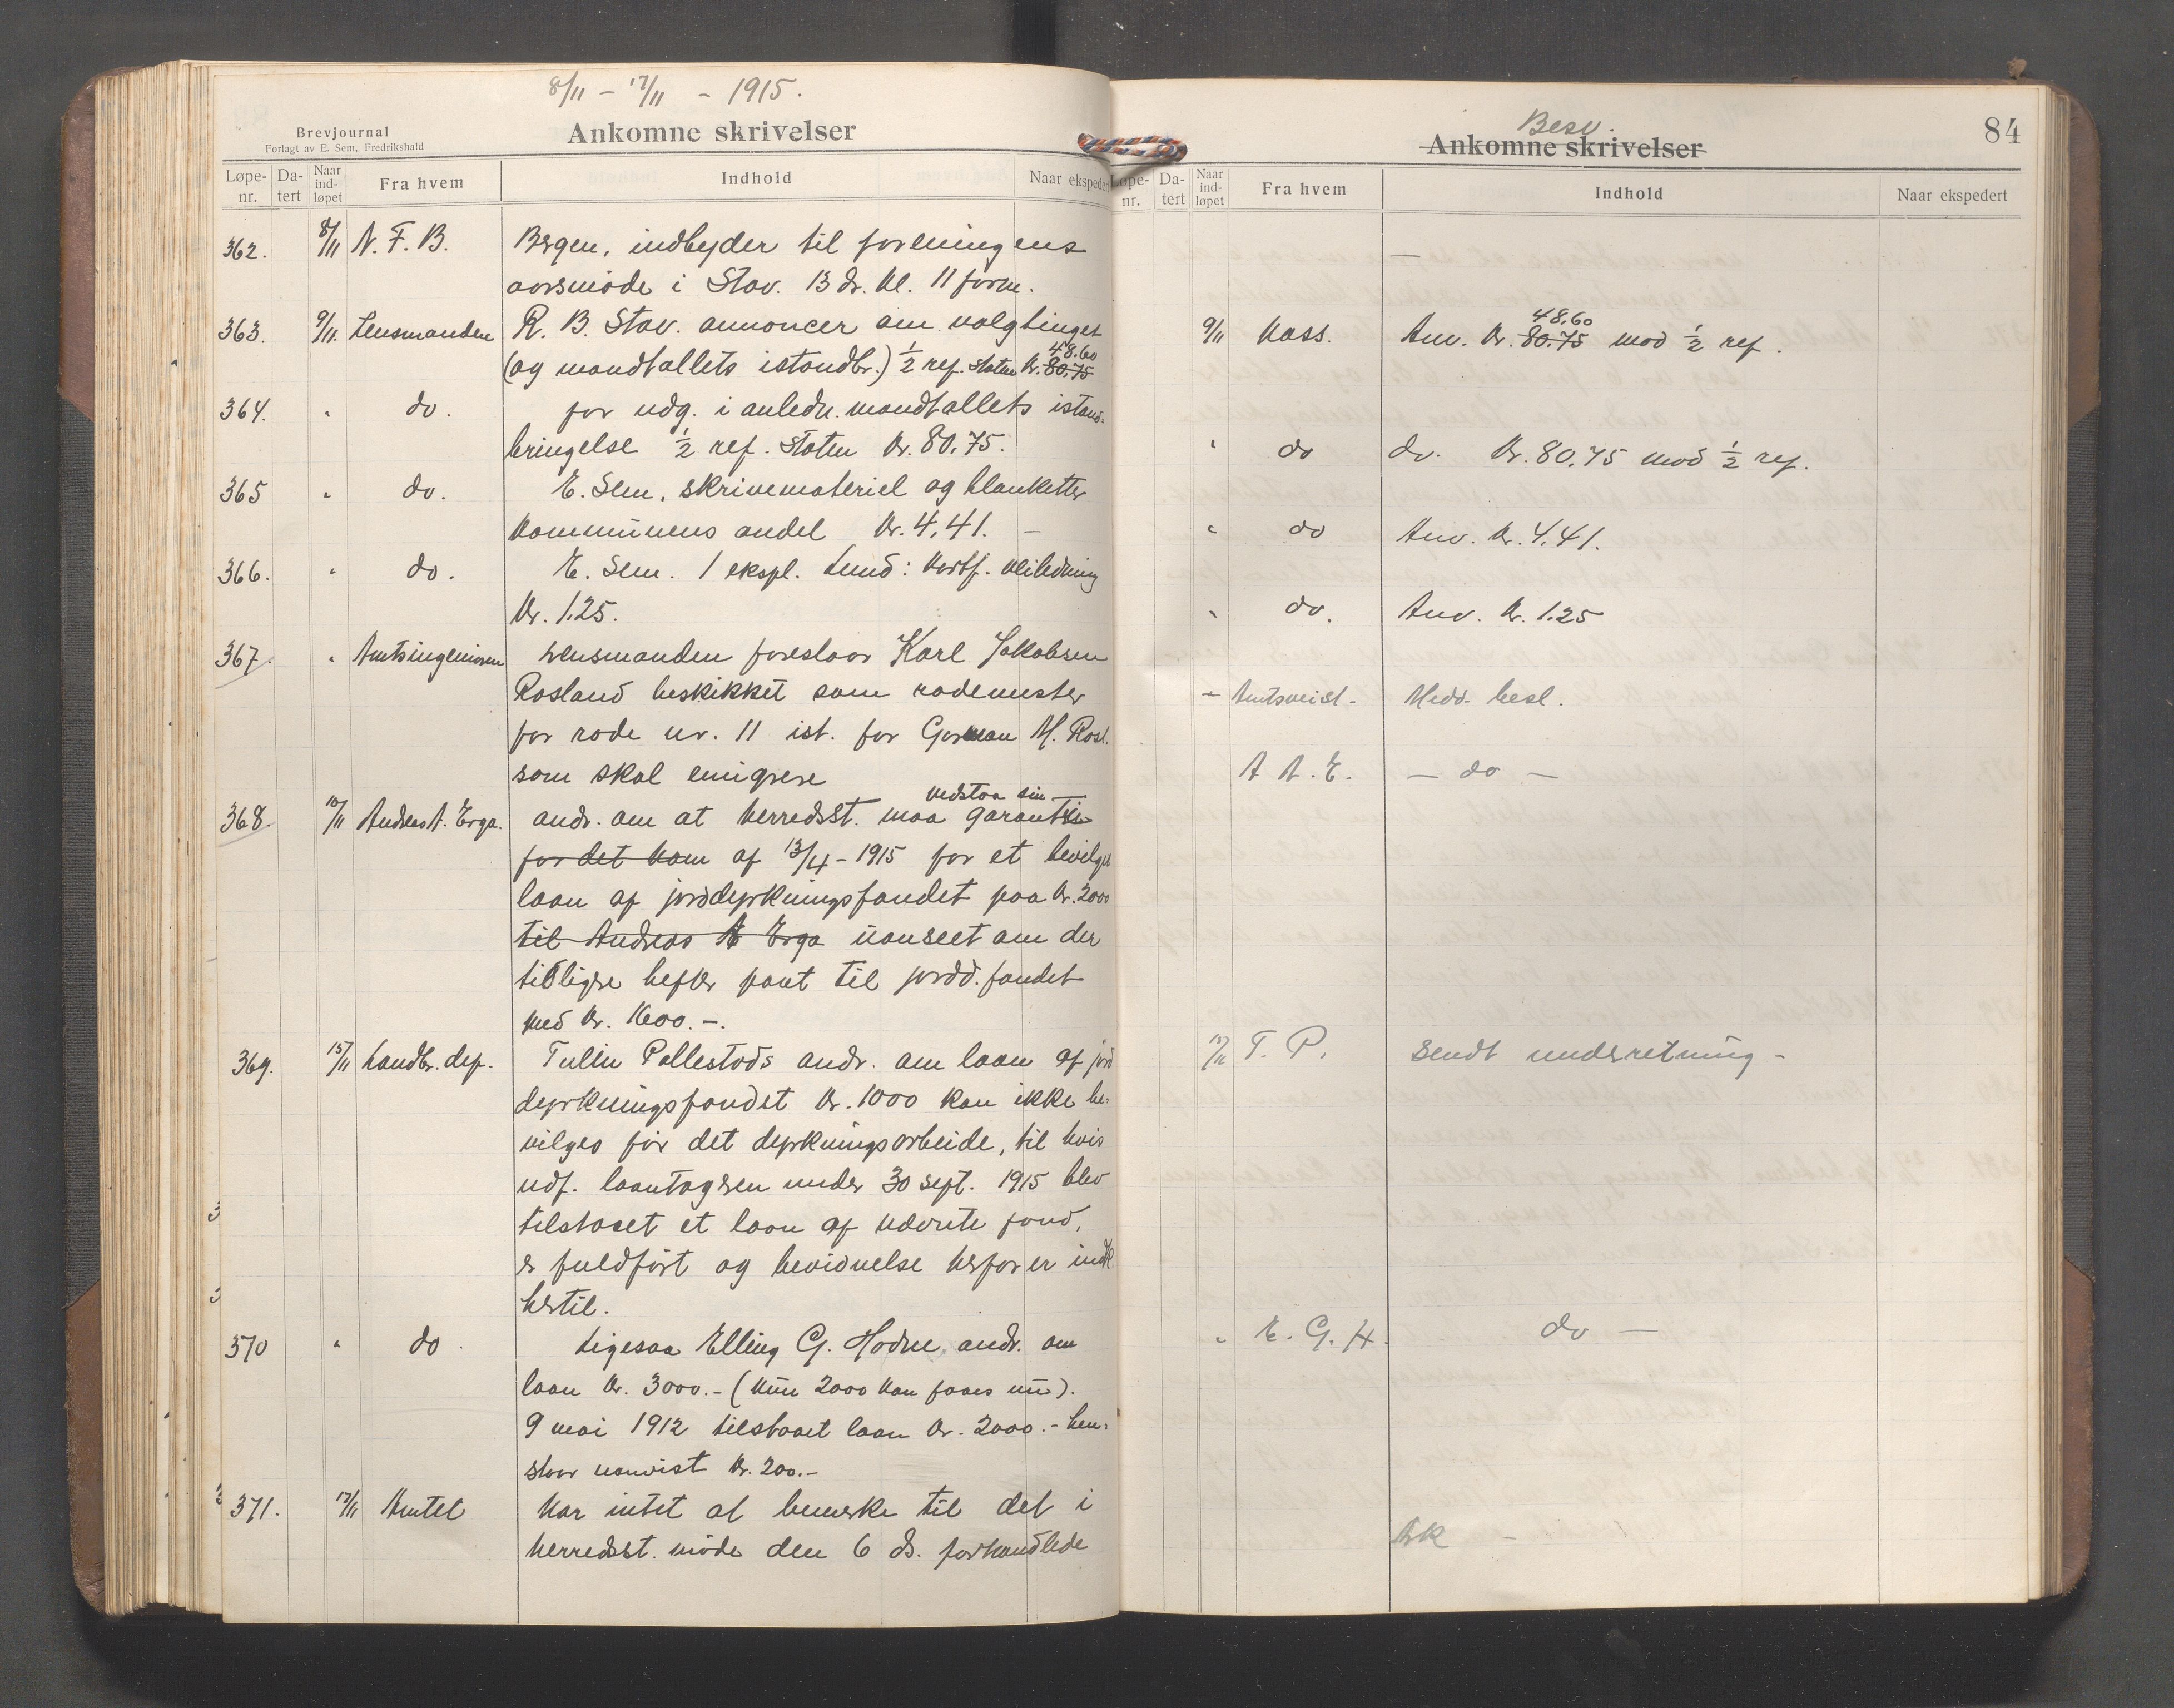 8/11 – 17/11 – 1915.
Brevjournal
Forlagt av E. Sem, Fredrikshald
Ankomne skrivelser
Løpe-nr. Da-tert Naar ind-løpet Fra hvem Indhold Naar ekspedert
362. 8/11 N. F. B. Bergen, indbyder til foreningens
aarsmøde i Stav. 13 ds. kl. 11 form.
363. 9/11. Lensmanden R. B. Stav. annoncer om valgtinget
48.60
(og mandtallets istandbr.) 1/2 ref. Staten Kr. 80.75
364. " do. for udg. i anledn. mandtallets istand-
bringelse 1/2 ref. Staten Kr. 80.75.
365 " do. E. Sem, skrivemateriel og blanketter
kommunens andel Kr. 4,41. –
366. " do. E. Sem. 1 ekspl. Lund: Kortf. veiledning
Kr. 1.25.
367. " Amtsingeniøren Lensmanden foreslaar Karl Jakobsen
Rosland beskikket som rodemester
for rode nr. 11 ist. for Gorman M. Rosl.
som skal emigrere
vedstaa sin
368. 10/11 Andreas A. Erga. andr. om at herredsst. maa garantien
for det kom af 13/4 – 1915 for et bevilget
laan af jorddyrkningsfondet paa Kr. 2000
til Andreas A Erga uanseet om der
tidligere hefter pant til jordd. fondet
med Kr. 1600. –.
369. 15/11 Landbr. dep. Tulin Pollestads andr. om laan af jord
dyrkningsfondet Kr. 1000 kan ikke be-
vilges før det dyrkningsarbeide, til hvis
udf. laantageren under 30 sept. 1915 blev
tilstaaet et laan af nævnte fond,
er fuldført og bevidnelse herfor er indk.
hertil.
370 " do. Ligesaa Elling G. Hodne andr. om
laan Kr. 3000.– (kun 2000 kan faaes nu).
9 mai 1912 tilstaaet laan Kr. 2000.– hen-
staar uanvist Kr. 200.–
371. 17/11 Amtet Har intet at bemerke til det i
herredsst. møde den 6 ds. forhandlede
Besv.
Ankomne skrivelser
84
Løpe-nr. Da-tert Naar ind-løpet Fra hvem Indhold Naar ekspedert
–
48.60
9/11 Kass. Anv. Kr. 80.75 mod 1/2 ref.
" do do. Kr. 80,75 mod 1/2 ref.
" do Anv. Kr. 4,41.
" do. Anv. Kr. 1.25
– Amtsveist. Medd. besl.
A A. E. – do –
17/11 T. P. Sendt underretning –
" E. G. H. do –